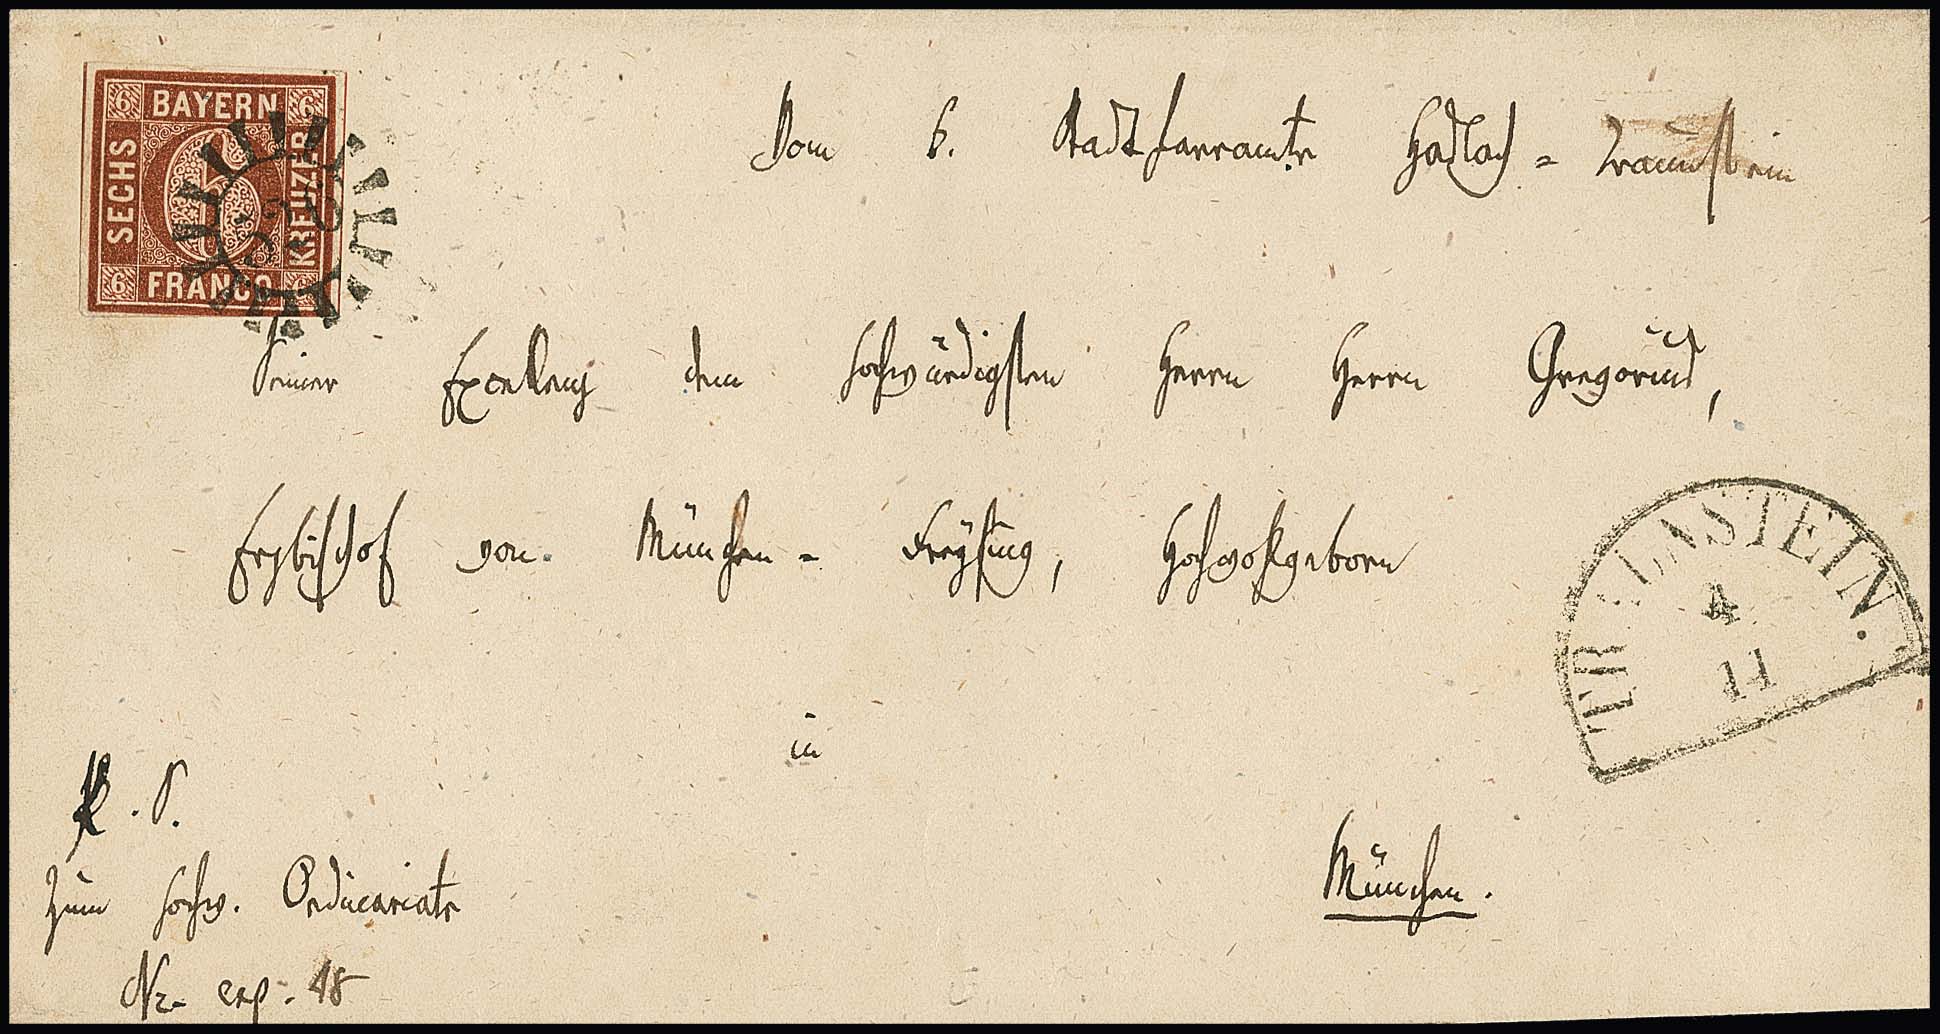 6 BAYERN 6
SECHS
6
KREUZER
6 FRANCO 6
Vom k. Stadtpfarramte Haslach = Traunstein
Seiner Excellenz dem hochwürdigsten Herrn Herrn Gregorius,
Erzbischof von München = Freysing, Hochwohlgeborn
in
München.
TRAUNSTEIN.
4
11
R. S.
Zum hochw. Ordinariate
Nr. exp. 48